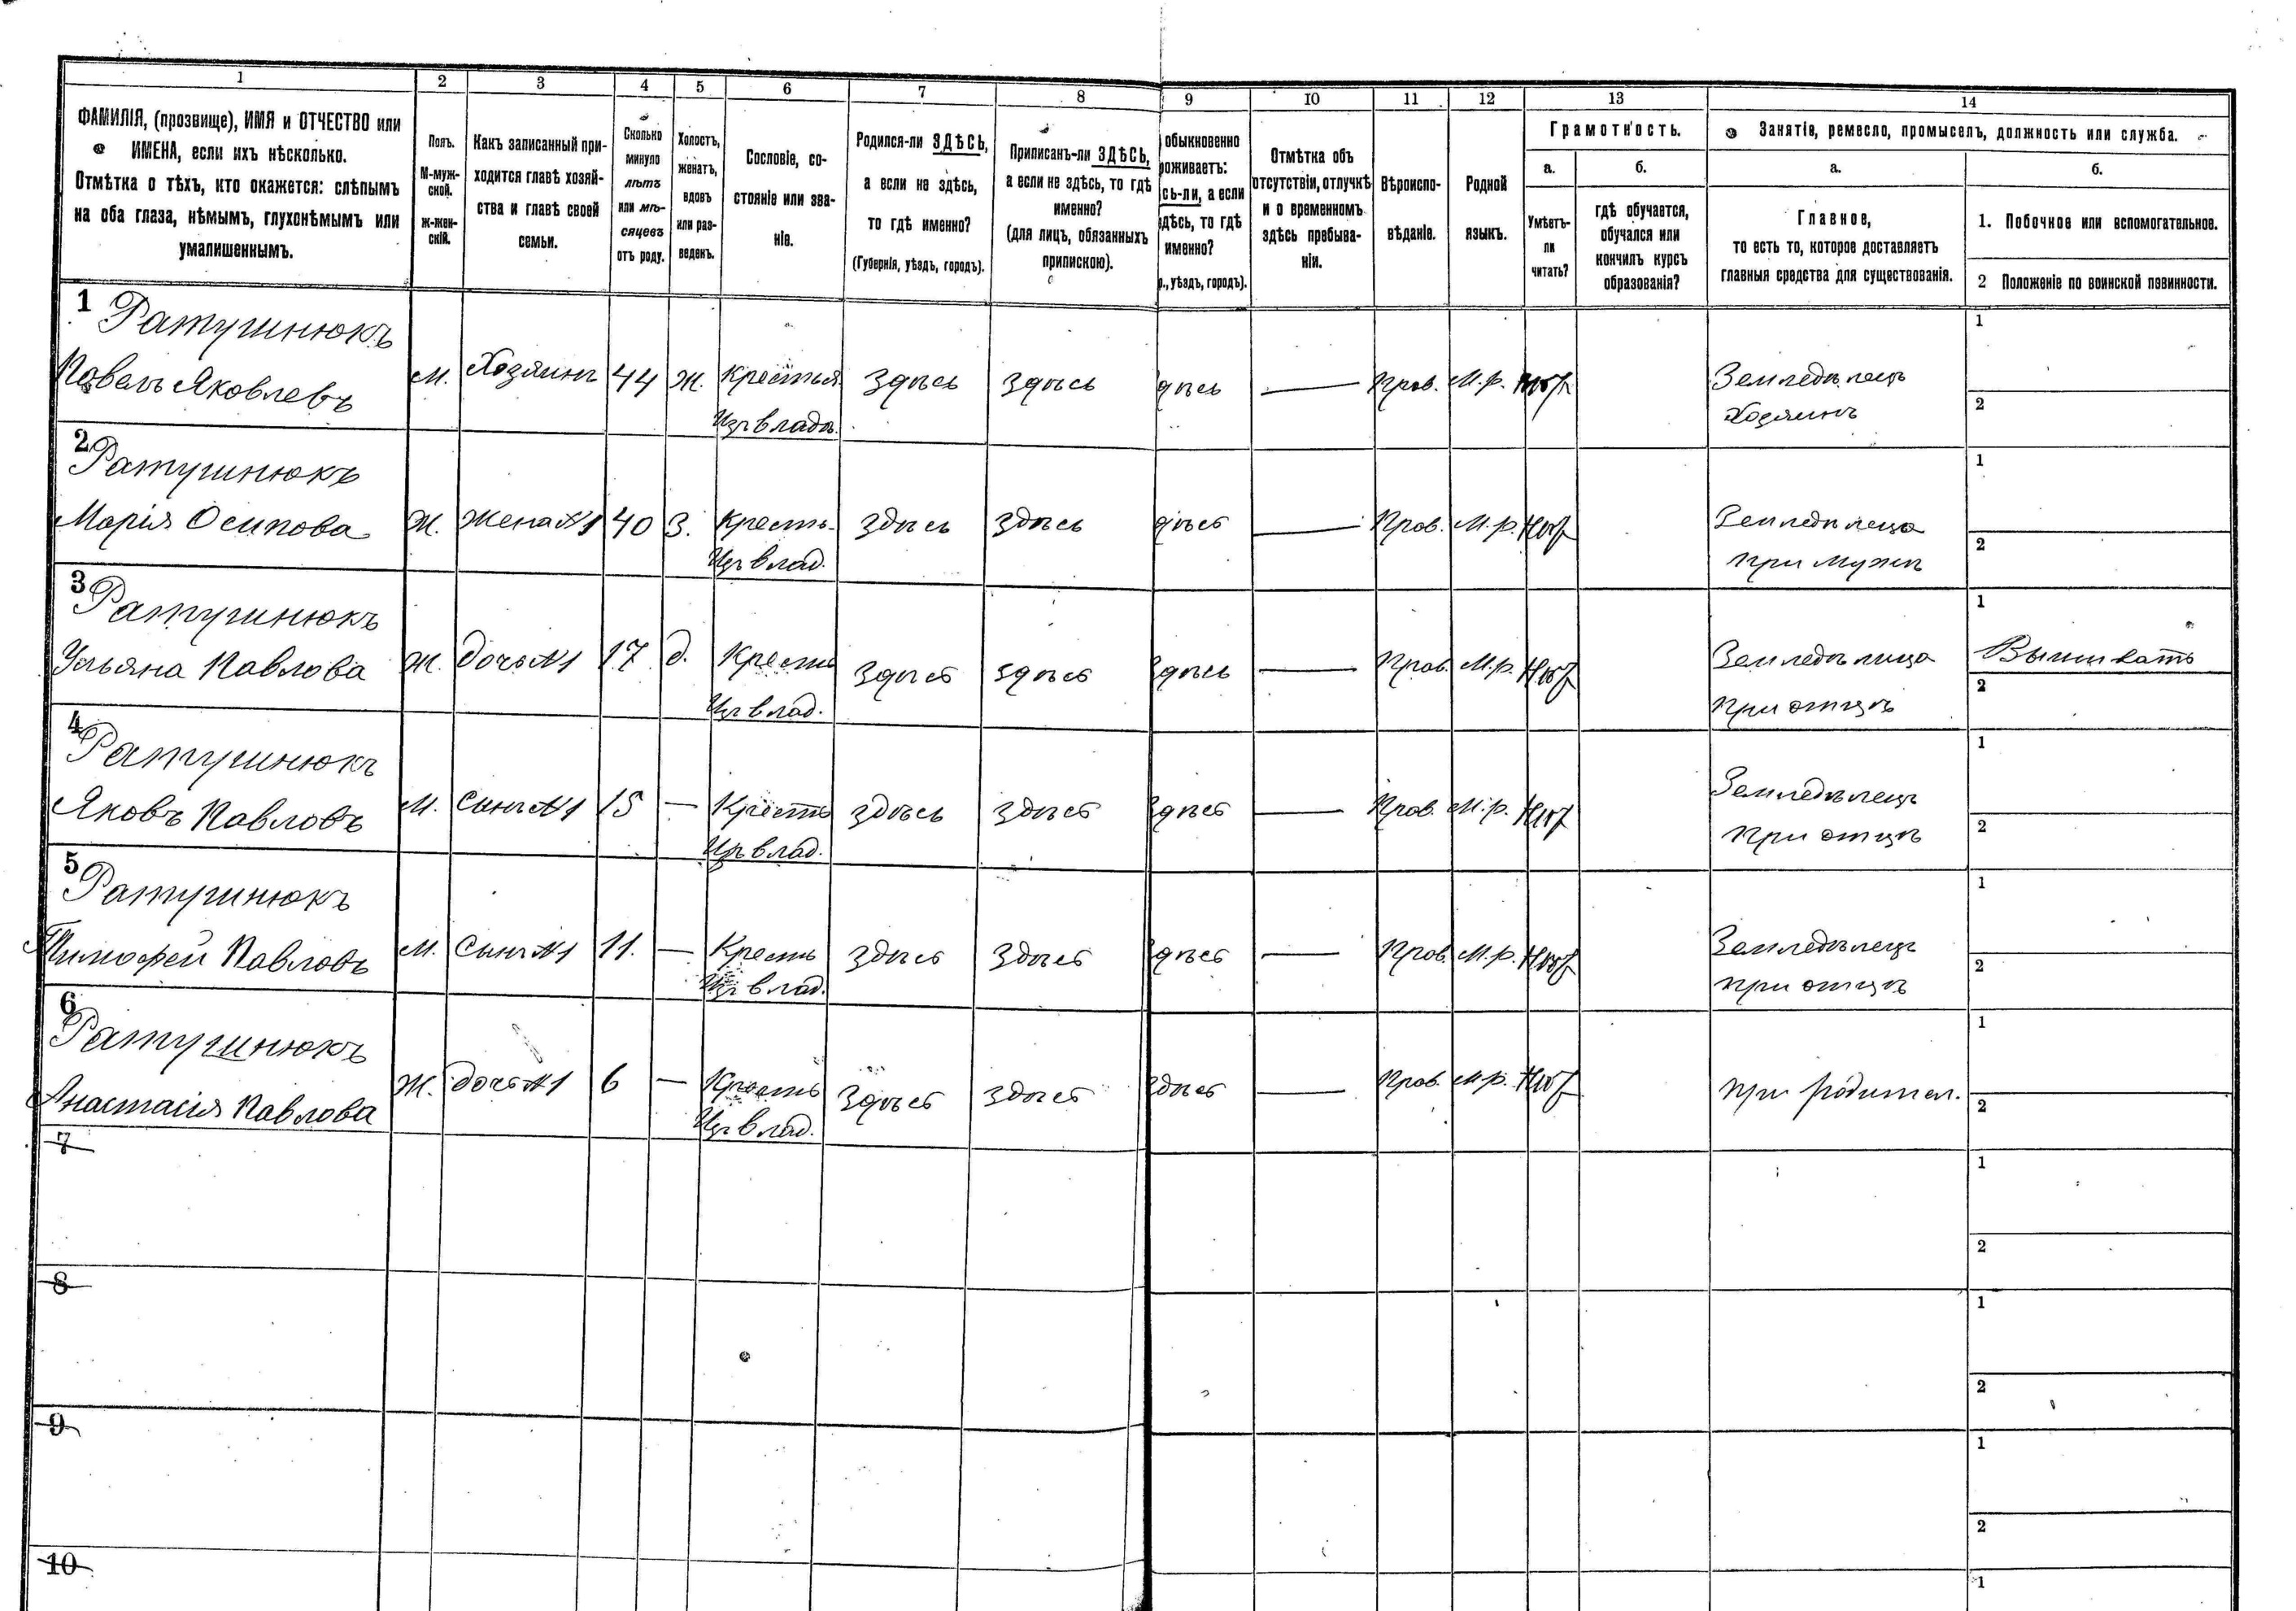 1 2 3 4 5 6 7 8 9 10 11 12 13 14
ФАМИЛІЯ, (прозвище), ИМЯ и ОТЧЕСТВО или
ИМЕНА, если ихъ нѣсколько.
Отмѣтка о тѣхъ, кто окажется: слѣпымъ
на оба глаза, нѣмымъ, глухонѣмымъ или
умалишеннымъ.
Полъ.
М-муж-
ской.
ж-жен-
скій.
Какъ записанный при-
ходится главѣ хозяй-
ства и главѣ своей
семьи.
Сколько
минуло
лѣтъ
или мѣ-
сяцевъ
отъ роду.
Холостъ,
женатъ,
вдовъ
или раз-
веденъ.
Сословіе, со-
стояніе или зва-
ніе.
Родился-ли ЗДѢСЬ,
а если не здѣсь,
то гдѣ именно?
(Губернія, уѣздъ, городъ).
Приписанъ-ли ЗДѢСЬ,
а если не здѣсь, то гдѣ
именно?
(для лицъ, обязанныхъ
припискою).
обыкновенно
роживаетъ:
сь-ли, а если
здѣсь, то гдѣ
именно?
., уѣздъ, городъ).
Отмѣтка объ
отсутствіи, отлучкѣ
и о временномъ
здѣсь пребыва-
ніи.
Вѣроиспо-
вѣданіе.
Родной
языкъ.
Грамотность.
а.
Умѣетъ-
ли
читать?
б.
гдѣ обучается,
обучался или
кончилъ курсъ
образованія?
Занятіе, ремесло, промыселъ, должность или служба.
а.
Главное,
то есть то, которое доставляетъ
главныя средства для существованія.
б.
1. Побочное или вспомогательное.
2 Положеніе по воинской повинности.
1 Ратушнюкъ 1
Павелъ Яковлевъ М. Хозяинъ 44 Ж. Крестья. здѣсь здѣсь дѣсь — Прав. М.р. Нѣт Земледѣлецъ
Изъ влад. Хозяинъ 2
2 Ратушнюкъ 1
Марія Осипова Ж. Жена №1 40 З. Кресть. здѣсь здѣсь дѣсь — Прав. М.р. Нѣт Земледѣлица
Изъ влад. при мужѣ 2
3 Ратушнюкъ 1
Ульяна Павлова Ж. дочь №1 17 д. Кресть здѣсь здѣсь здѣсь — Прав. М.р. Нѣт Земледѣлица Вышивать
Изъ влад. при отцѣ 2
4 Ратушнюкъ 1
Яковъ Павловъ М. Сынъ №1 15 — Кресть здѣсь здѣсь здѣсь — Прав. М.р. Нѣт Земледѣлецъ
Изъ влад. при отцѣ 2
5 Ратушнюкъ 1
Тимофей Павловъ М. Сынъ №1 11. — Кресть здѣсь здѣсь здѣсь — Прав. М.р. Нѣт Земледѣлецъ
Изъ влад. при отцѣ 2
6 Ратушнюкъ 1
Анастасія Павлова Ж. дочь №1 6 — Кресть здѣсь здѣсь здѣсь — Прав. М.р. Нѣт при родител.
Изъ влад. 2
7 1
2
8 1
2
9 1
2
10 1